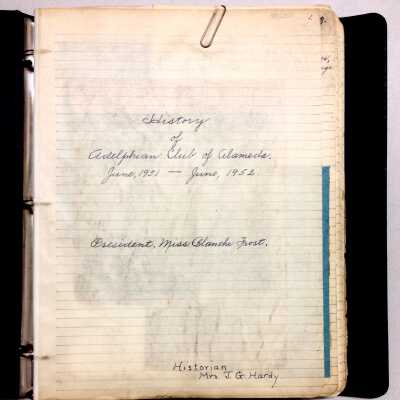 History
of
Adelphian Club of Alameda.
June, 1951 — June, 1952
President, Miss Blanche Frost.
Historian
Mrs J. G. Hardy